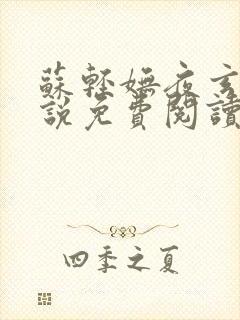 蘇輕嫵夜玄
說免費閱讀
四季之夏